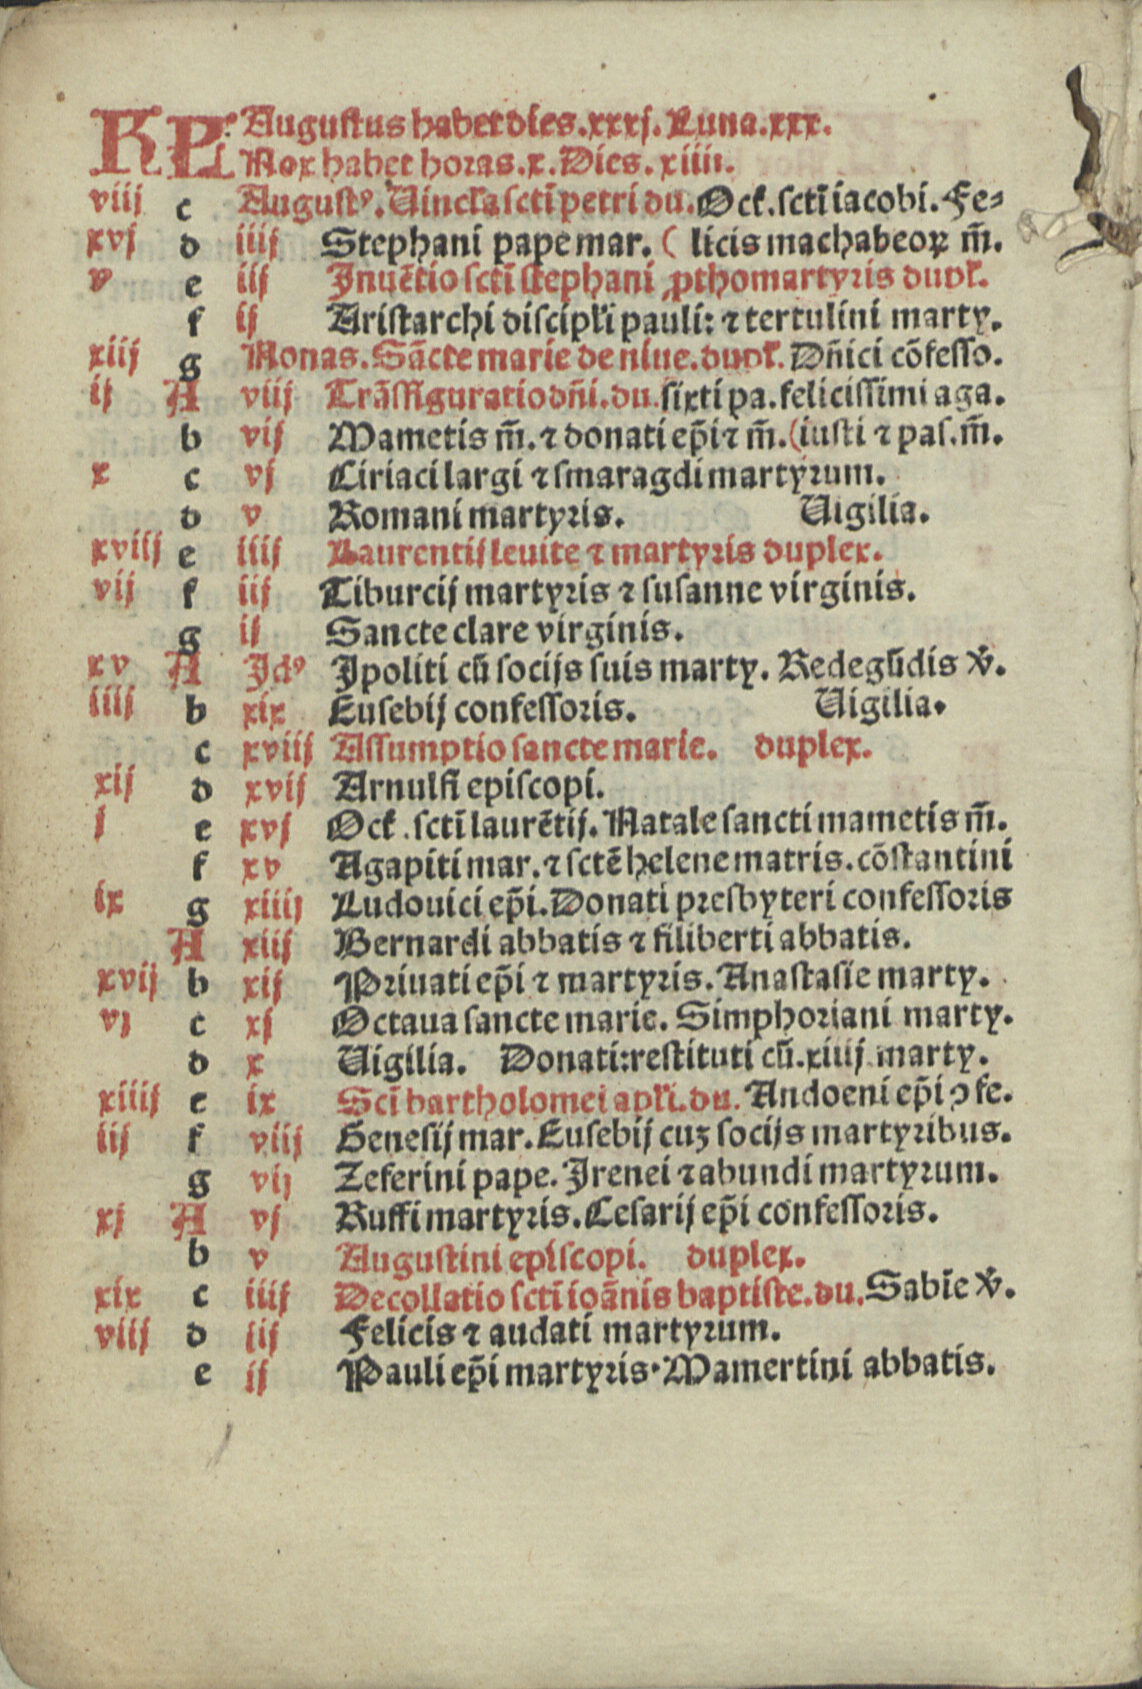 KL Augustus habet dies.xxxj. Luna.xxx.
Nox habet horas.x. Dies.xiiii.
viij c Augustꝰ. Uincľa scti̅ petri du. Oct̛. scti̅ iacobi. Fe-
xvj d iiij Stephani pape mar. ( licis machabeoꝝ m̅.
v e iij Inue̅tio scti̅ stephani ꝓthomartyris dupľ.
f ij Aristarchi discipľi pauli: ⁊ tertulini marty.
xiij g Nonas. Sa̅cte marie de niue. dupľ. Dn̅ici co̅fesso.
ij A viij Tra̅sfiguratio dn̅i. du. sixti pa. felicissimi aga.
b vij Mametis m̅. ⁊ donati ep̅i ⁊ m̅. (iusti ⁊ pas. m̅.
x c vj Ciriaci largi ⁊ smaragdi martyrum.
d v Romani martyris. Uigilia.
xviij e iiij Laurentij leuite ⁊ martyris duplex.
vij f iij Tiburcij martyris ⁊ susanne virginis.
g ij Sancte clare virginis.
xv A Idꝰ Ipoliti cu̅ socijs suis marty. Redegu̅dis v̛.
iiij b xix Eusebij confessoris. Uigilia.
c xviij Assumptio sancte marie. duplex.
xij d xvij Arnulfi episcopi.
j e xvj Oct̛. scti̅ laure̅tij. Natale sancti mametis m̅.
f xv Agapiti mar. ⁊ scte̅ helene matris. co̅stantini
ix g xiiij Ludouici ep̅i. Donati presbyteri confessoris
A xiij Bernardi abbatis ⁊ filiberti abbatis.
xvij b xij Priuati ep̅i ⁊ martyris. Anastasie marty.
vj c xj Octaua sancte marie. Simphoriani marty.
d x Uigilia. Donati: restituti cu̅.xiiij marty.
xiiij e ix Sci̅ bartholomei apľi. du. Andoeni ep̅i ꝯfe.
iij f viij Genesij mar. Eusebij cuꝫ socijs martyribus.
g vij Zeferini pape. Irenei ⁊ abundi martyrum.
xj A vj Ruffi martyris. Cesarij ep̅i confessoris.
b v Augustini episcopi. duplex.
xix c iiij Decollatio scti̅ ioa̅nis baptiste. du. Sabie v̛.
viij d iij Felicis ⁊ audati martyrum.
e ij Pauli ep̅i martyris. Mamertini abbatis.